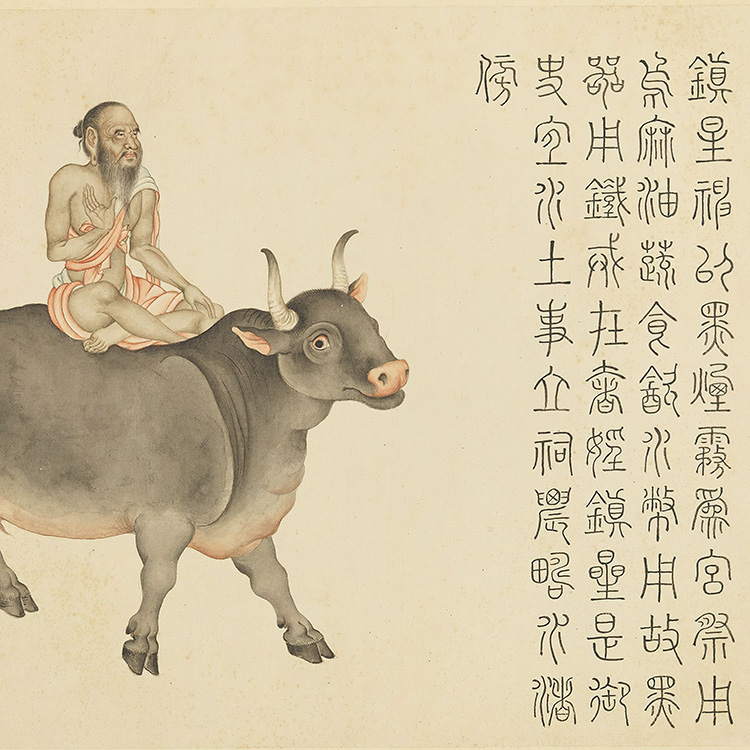 鎮星神以黑煙霧爲宮祭用
烏麻油蔬食飲水幣用故黑
器用鐵戒在奢婬鎮星是御
史宜水土事立祠農畧水渚
傍